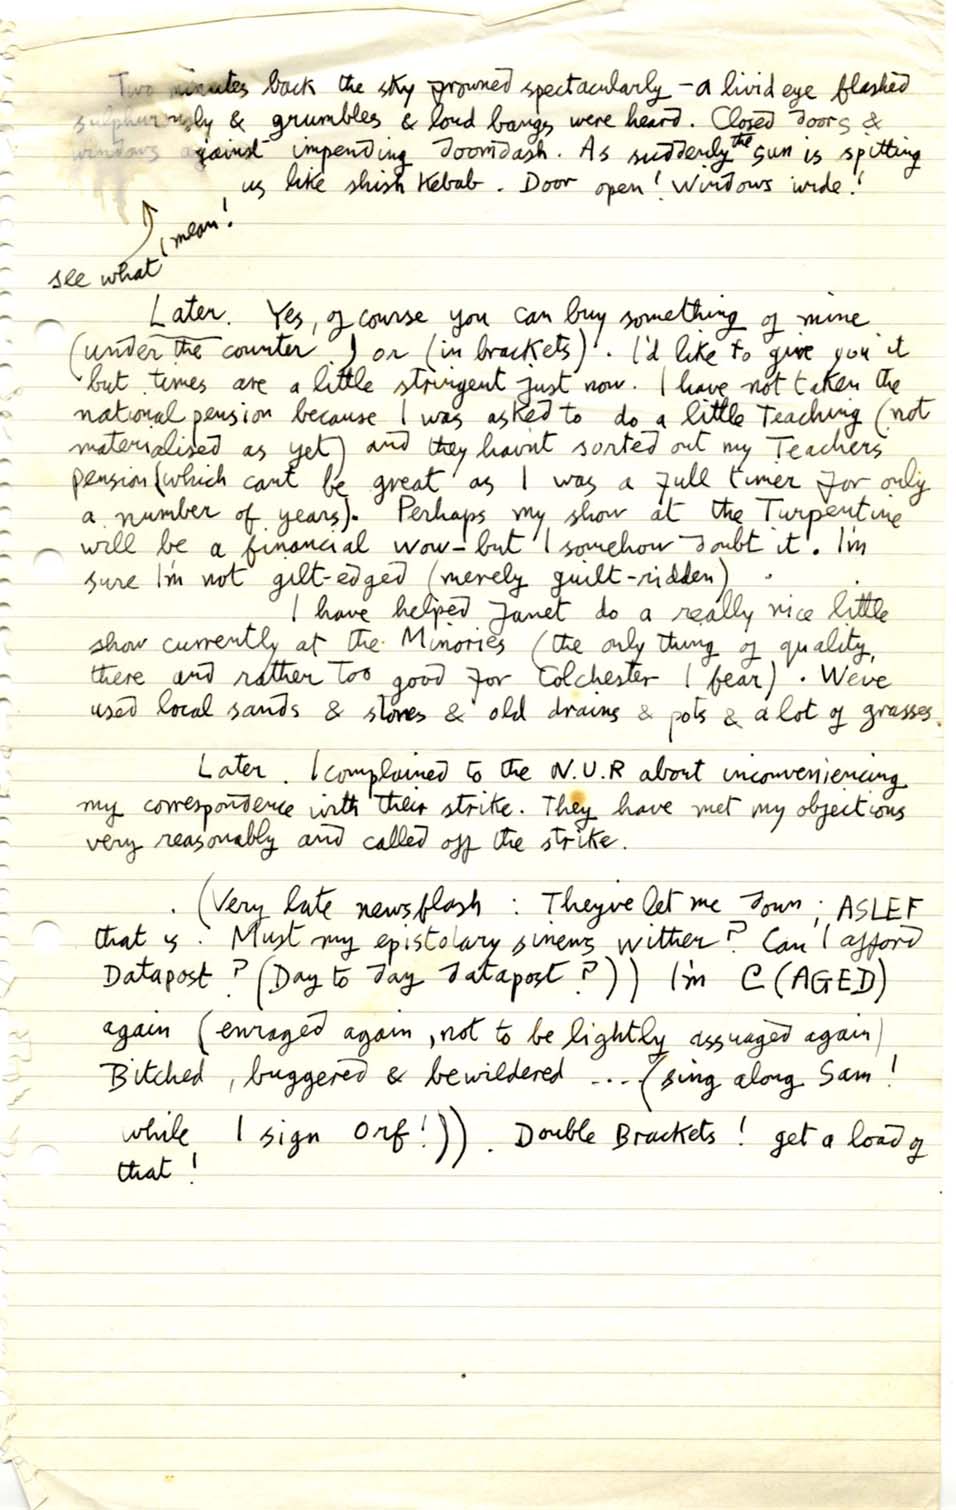 Two minutes back the sky frowned spectacularly – a livid eye flashed
sulphurously & grumbles & loud bangs were heard. Closed doors &
windows against impending doomdash. As suddenly the sun is spitting
us like shish kebab. Door open! Windows wide!
see what I mean!
Later. Yes, of course you can buy something of mine
(under the counter) or (in brackets). I'd like to give you it
but times are a little stringent just now. I have not taken the
national pension because I was asked to do a little Teaching (not
materialised as yet) and they havnt sorted out my Teachers
pension (which cant be great as I was a full timer for only
a number of years). Perhaps my show at the Turpentine
will be a financial wow – but I somehow doubt it. I'm
sure I'm not gilt-edged (merely guilt-ridden)
I have helped Janet do a really nice little
show currently at the Minories (the only thing of quality,
there and rather too good for Colchester I fear). Weve
used local sands & stones & old drains & pots & a lot of grasses.
Later. I complained to the N.U.R about inconveniencing
my correspondence with their strike. They have met my objections
very reasonably and called off the strike.
(Very late newsflash : Theyve let me down; ASLEF
that is. Must my epistolary sinews wither? Can I afford
Datapost? (Day to day datapost?)) I'm C(AGED)
again (enraged again, not to be lightly assuaged again)
Bitched, buggered & bewildered .... (sing along Sam!
while I sign Orf!)). Double Brackets! get a load of
that!